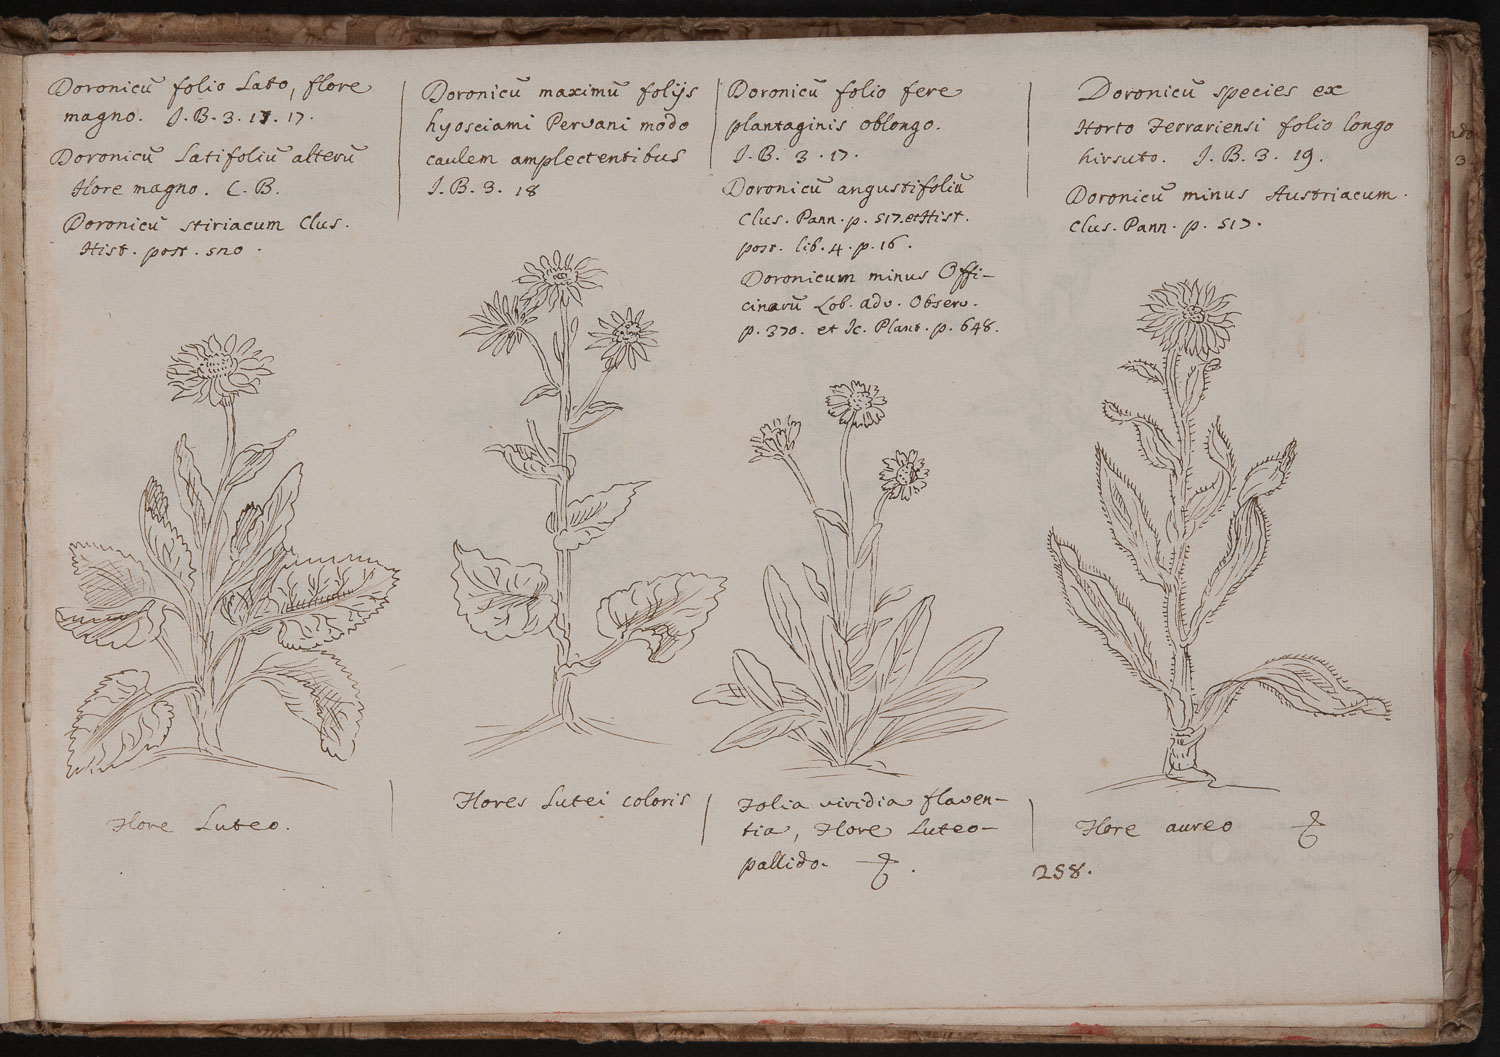 Doronicū folio Lato, flore
magno. J. B. 3. 17. 17.
Doronicū Latifoliū alterū
flore magno. C. B.
Doronicū stiriacum Clus.
Hist. post. sno.
Doronicū maximū folijs
hyosciami Peruani modo
caulem amplectentibus
J. B. 3. 18
Doronicū folio fere
plantaginis oblongo.
J. B. 3. 17.
Doronicū angustifoliū
Clus. Pann. p. 517. et Hist.
post. lib. 4. p. 16.
Doronicum minus Offi-
cinarū Lob. adv. Observ.
p. 370. et Ic. Plant. p. 648.
Doronicū species ex
Horto Ferrariensi folio longo
hirsuto. J. B. 3. 19.
Doronicū minus Austriacum.
Clus. Pann. p. 517.
Flore Luteo.
Flores Lutei coloris
Folia viridia flaven-
tia, Flore Luteo-
pallido.
Flore aureo
258.